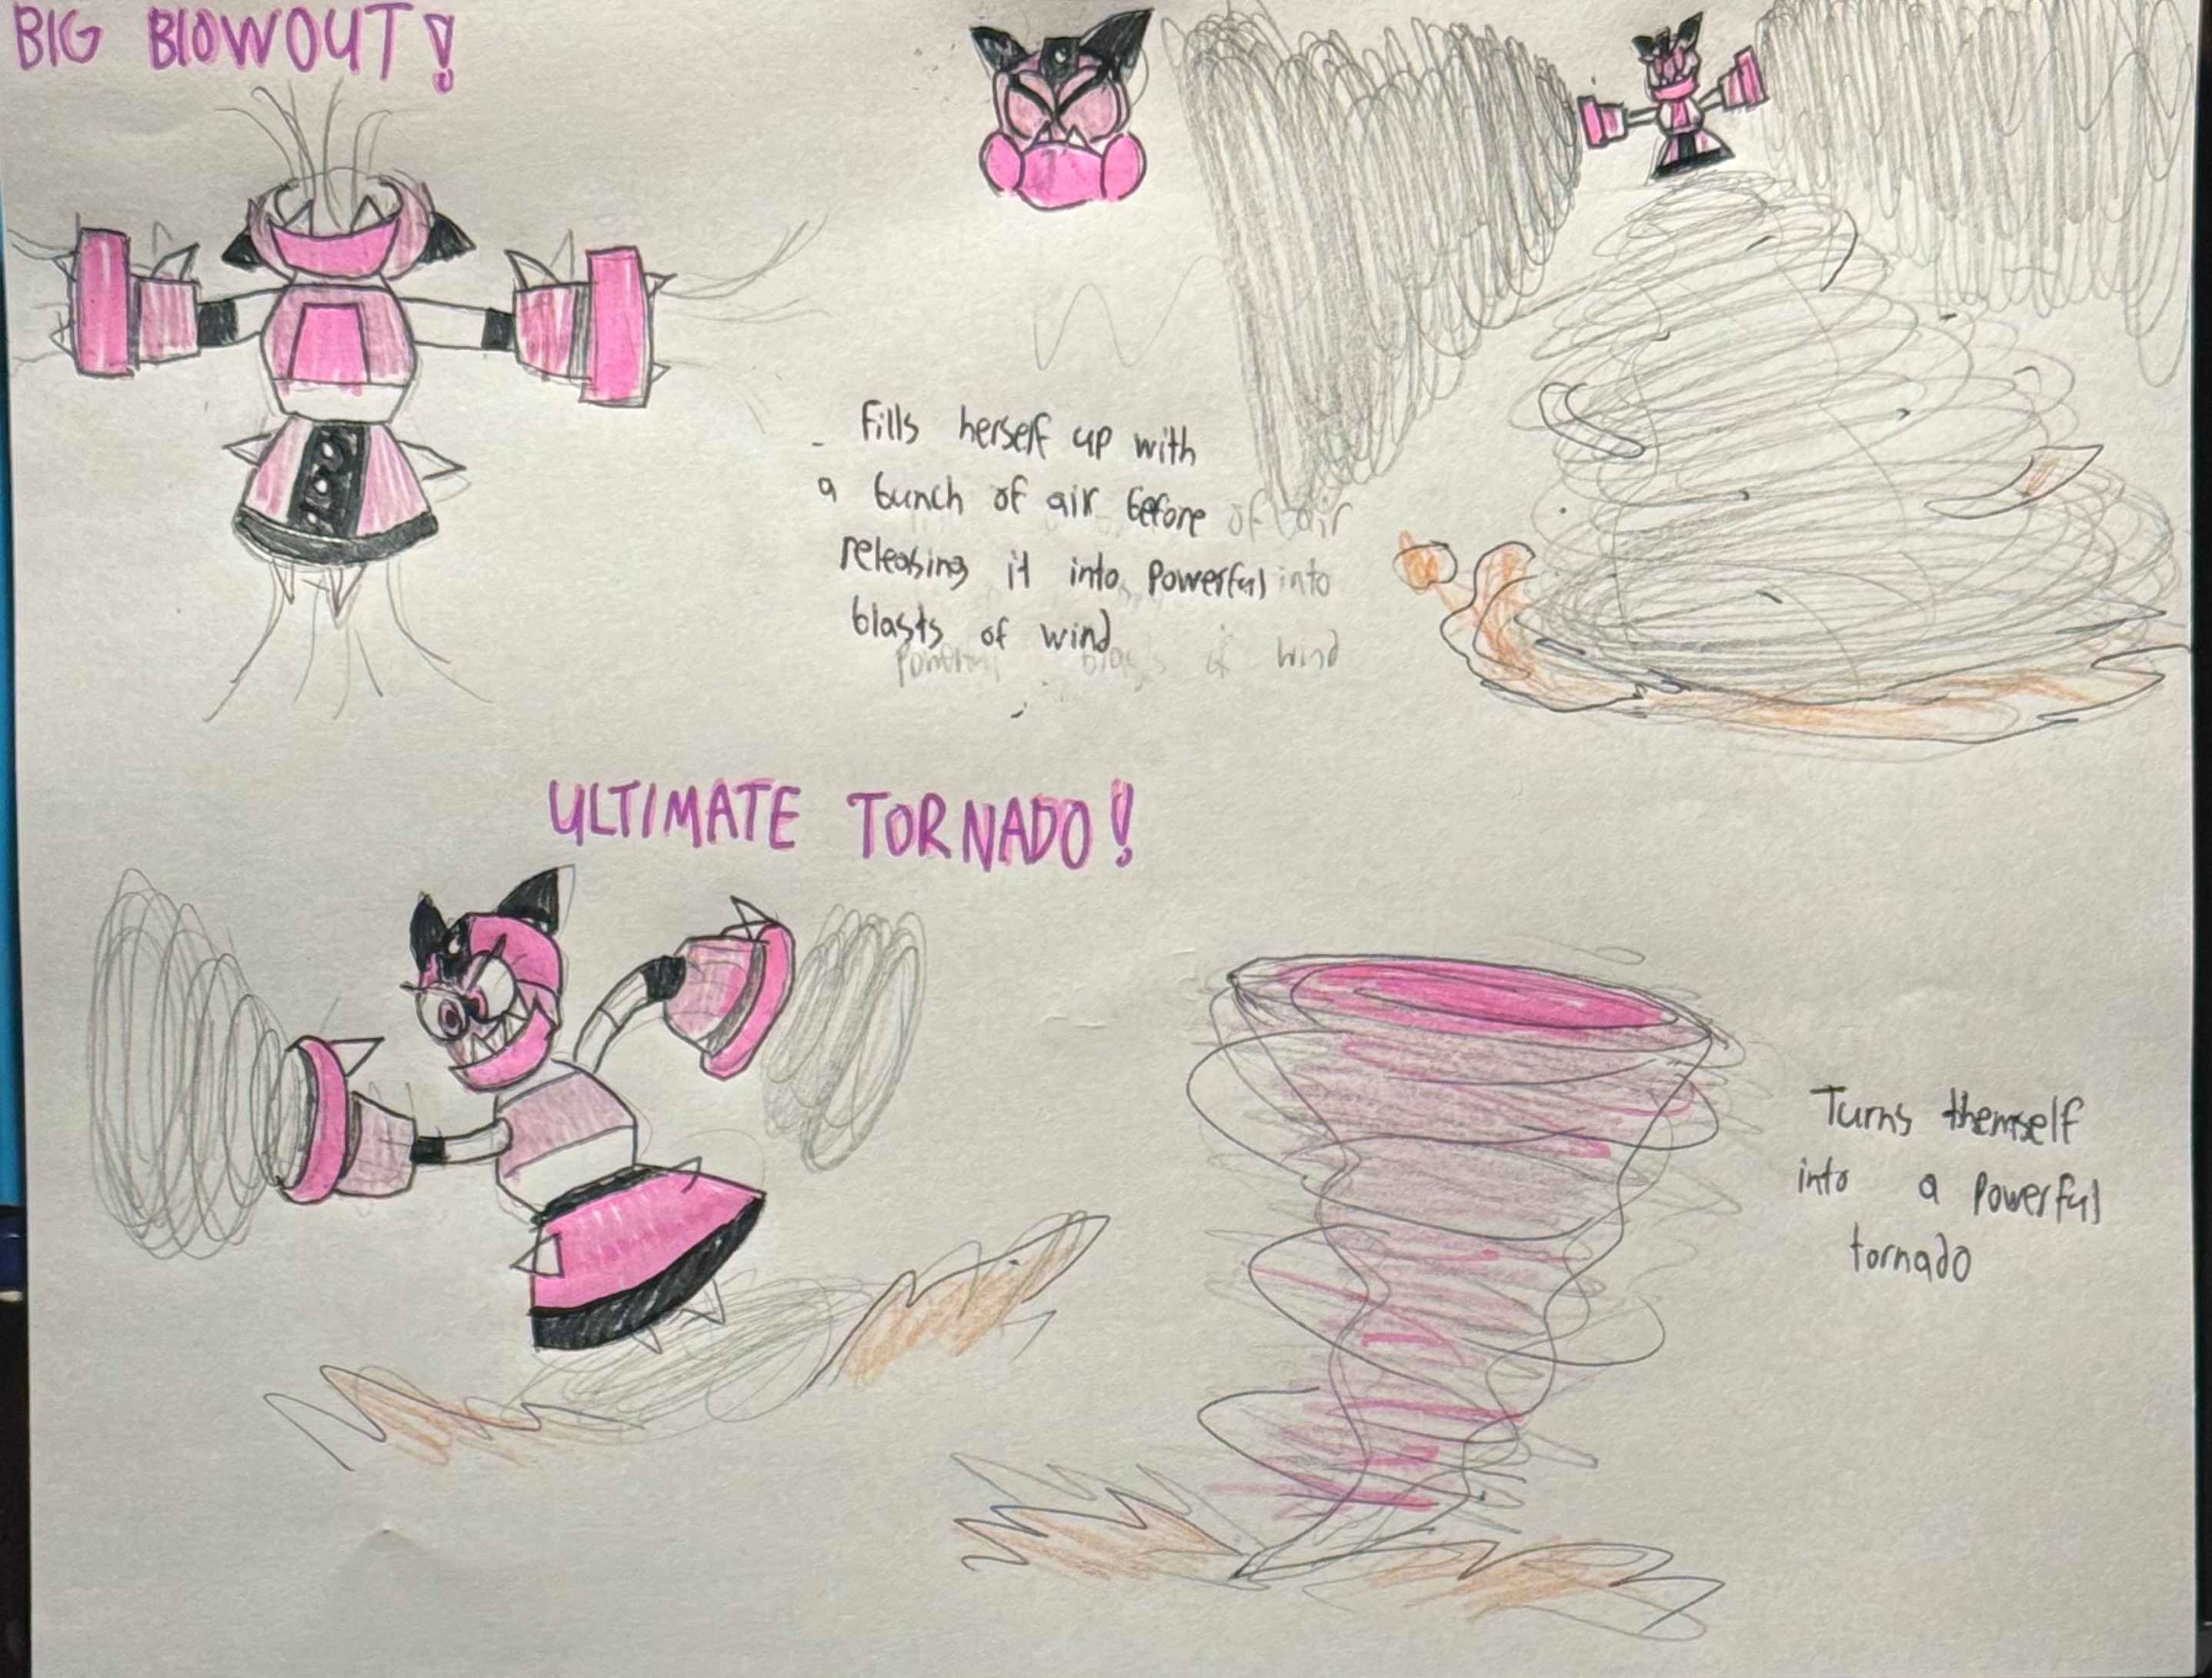 BIG BLOWOUT!
- Fills herself up with
a bunch of air before of air
releasing it into powerful into
blasts of wind
powerful blasts of wind
ULTIMATE TORNADO!
Turns themself
into a powerful
tornado